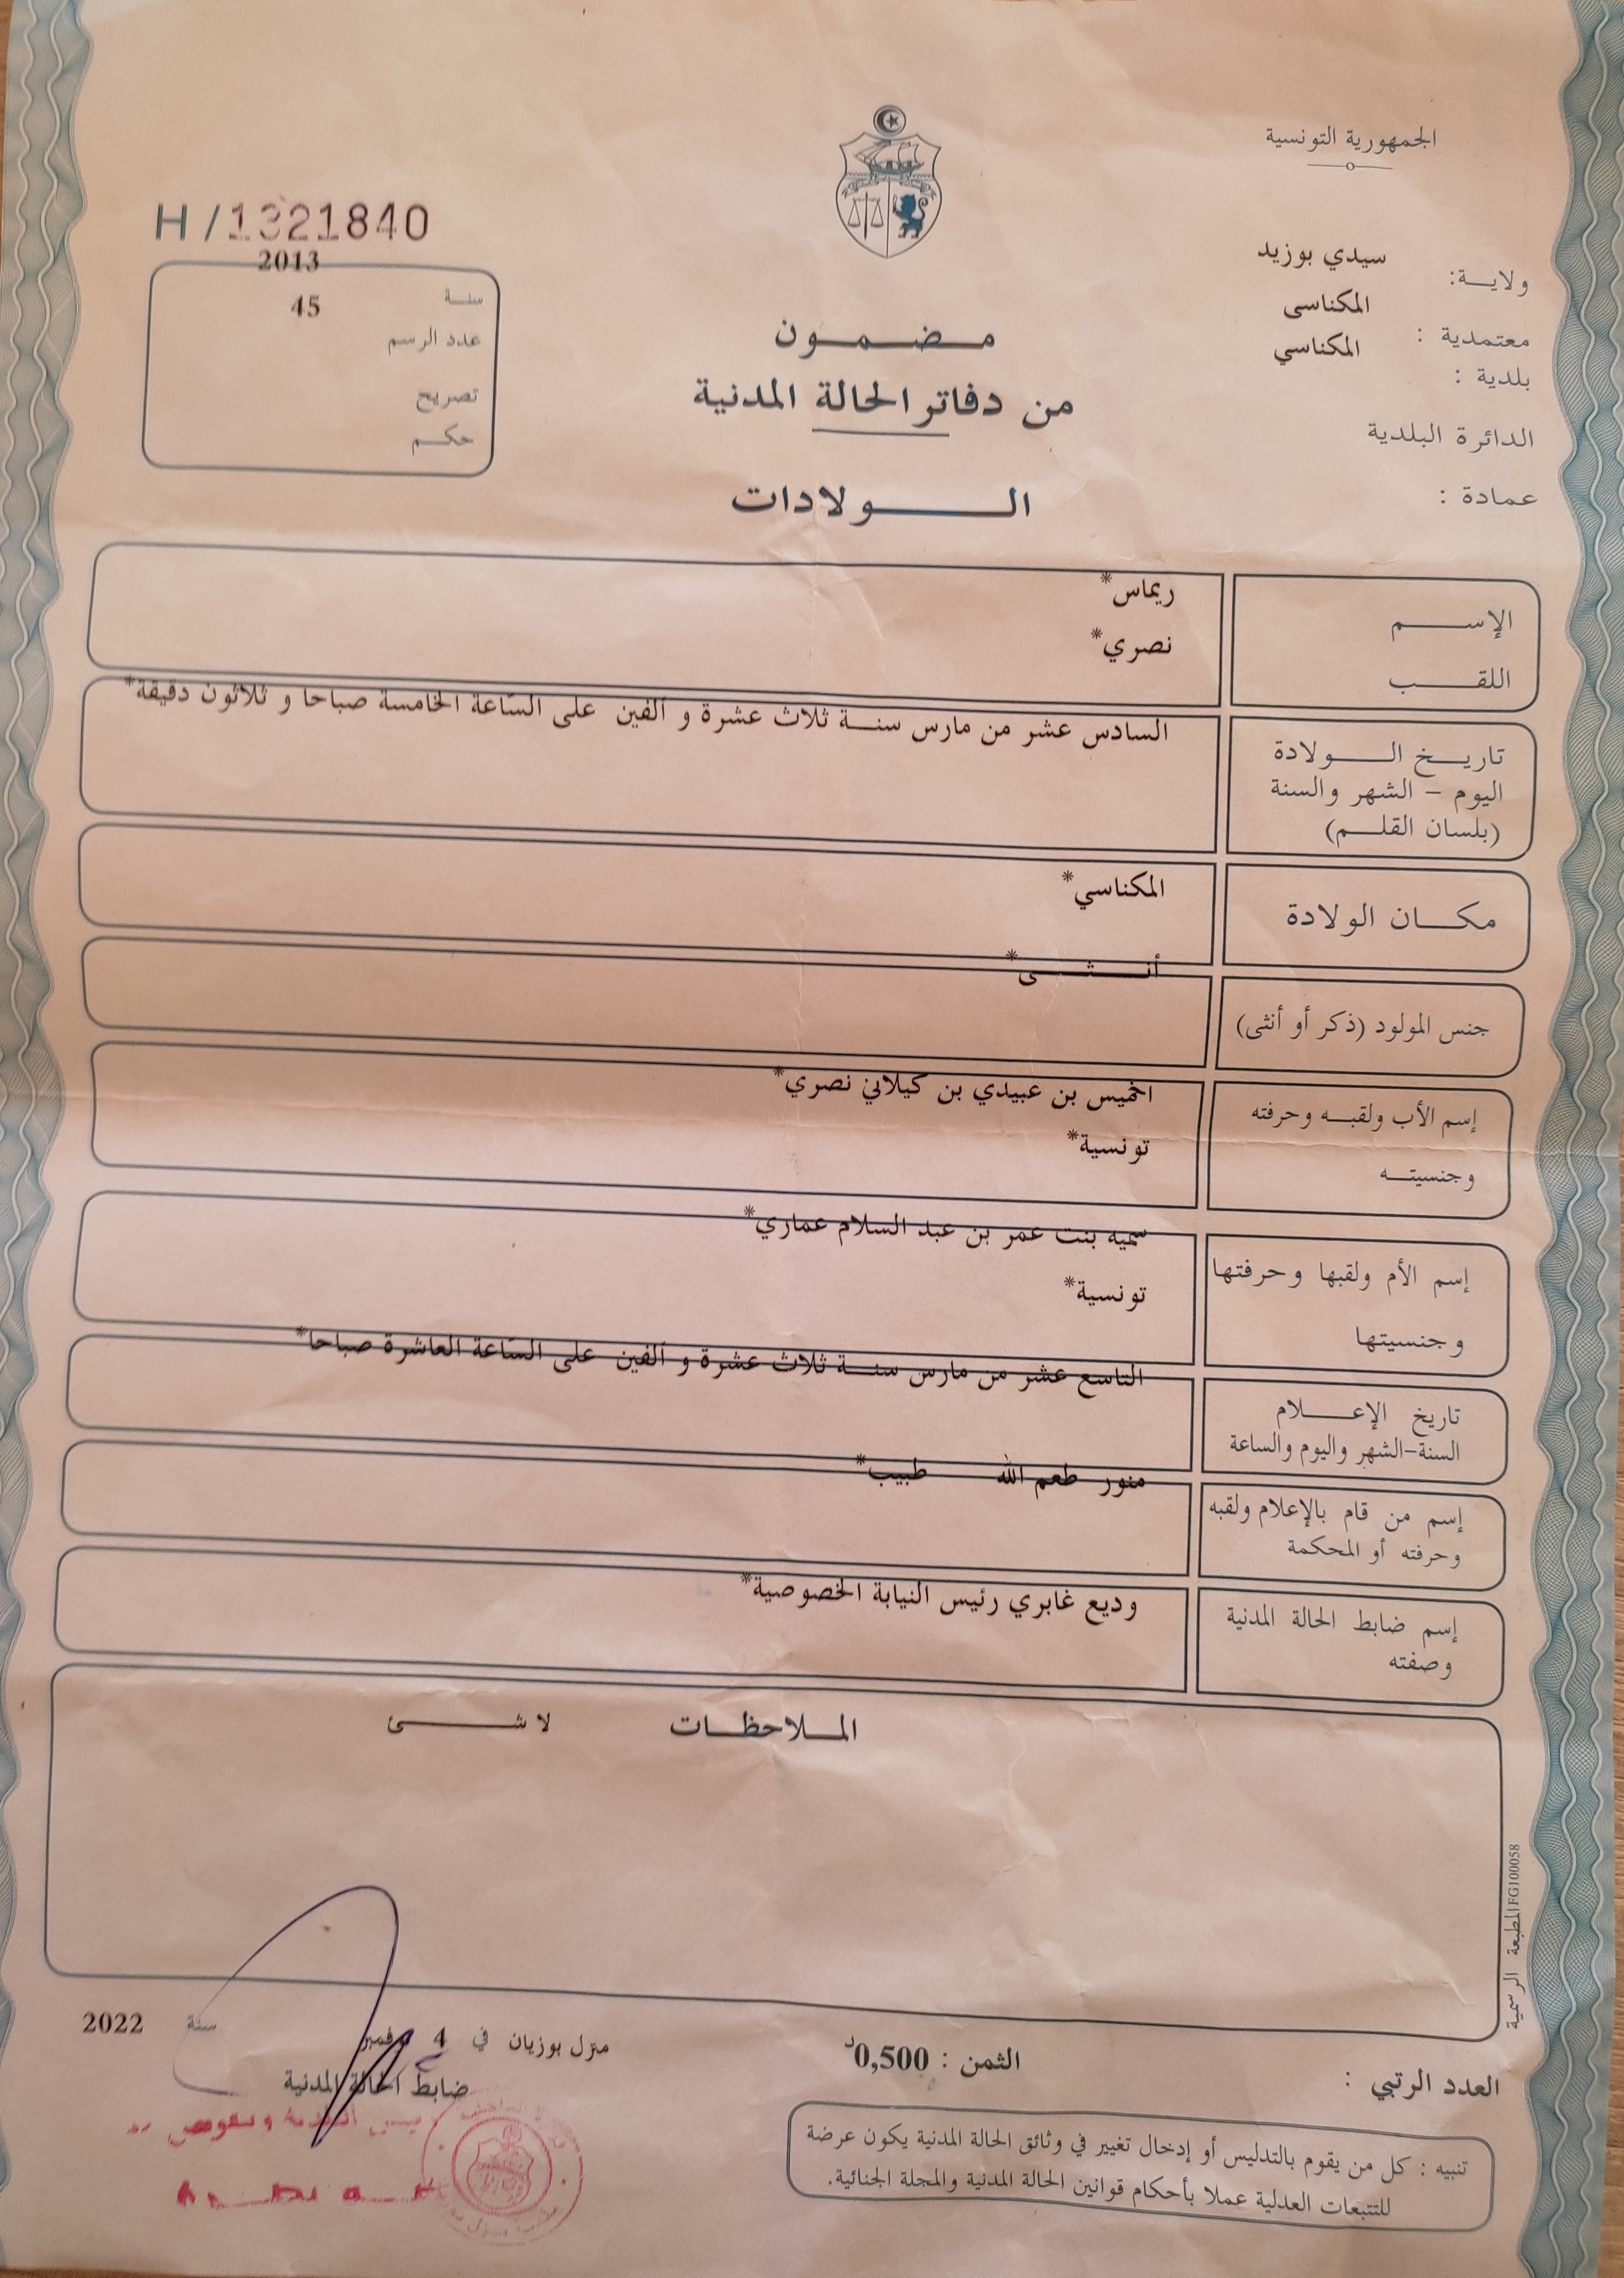 الجمهورية التونسية
ولايـــة: سيدي بوزيد
معتمدية : المكناسى
بلدية : المكناسي
الدائرة البلدية
عمادة :
H/1321840
2013
سنـة
45
عدد الرسم
تصريح
حكـم
مـضـمـون
من دفاتر الحالة المدنية
الـــولادات
الإســـم
ريماس*
اللقـــب
نصري*
تاريـــخ الـــولادة
اليوم - الشهر والسنة
(بلسان القلـــم)
السادس عشر من مارس سنـــة ثلاث عشرة و ألفين على السّاعة الخامسة صباحا و ثلاثون دقيقة*
مكـــان الولادة
المكناسي*
جنس المولود (ذكر أو أنثى)
أنـــثـــى*
إسم الأب ولقبـــه وحرفته
وجنسيتـــه
اخميس بن عبيدي بن كيلاني نصري*
تونسية*
إسم الأم ولقبها وحرفتها
وجنسيتها
سميه بنت عمر بن عبد السلام عماري*
تونسية*
تاريخ الإعـــلام
السنة-الشهر واليوم والساعة
التاسع عشر من مارس سنـــة ثلاث عشرة و ألفين على السّاعة العاشرة صباحا*
إسم من قام بالإعلام ولقبه
وحرفته أو المحكمة
منور طعم الله طبيب*
إسم ضابط الحالة المدنية
وصفته
وديع غابري رئيس النيابة الخصوصية*
المـلاحظـات لا شـــئ
المطبعة الرسمية FG100058
منزل بوزيان في 4 نوفمبر سنة 2022
ضابط الحالة المدنية
الثمن : 0,500د
العدد الرتبي :
تنبيه : كل من يقوم بالتدليس أو إدخال تغيير في وثائق الحالة المدنية يكون عرضة
للتتبعات العدلية عملا بأحكام قوانين الحالة المدنية والمجلة الجنائية.